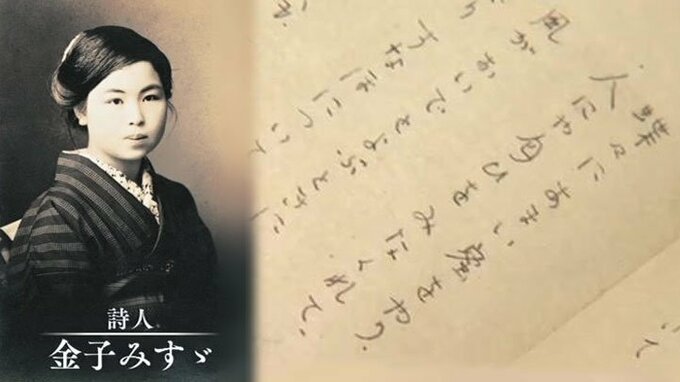 詩人
金子みすゞ
蝶々にあまい蜜をやり、
人にや匂ひをみなくれて、
風がおいでとよぶときに
すなほについて